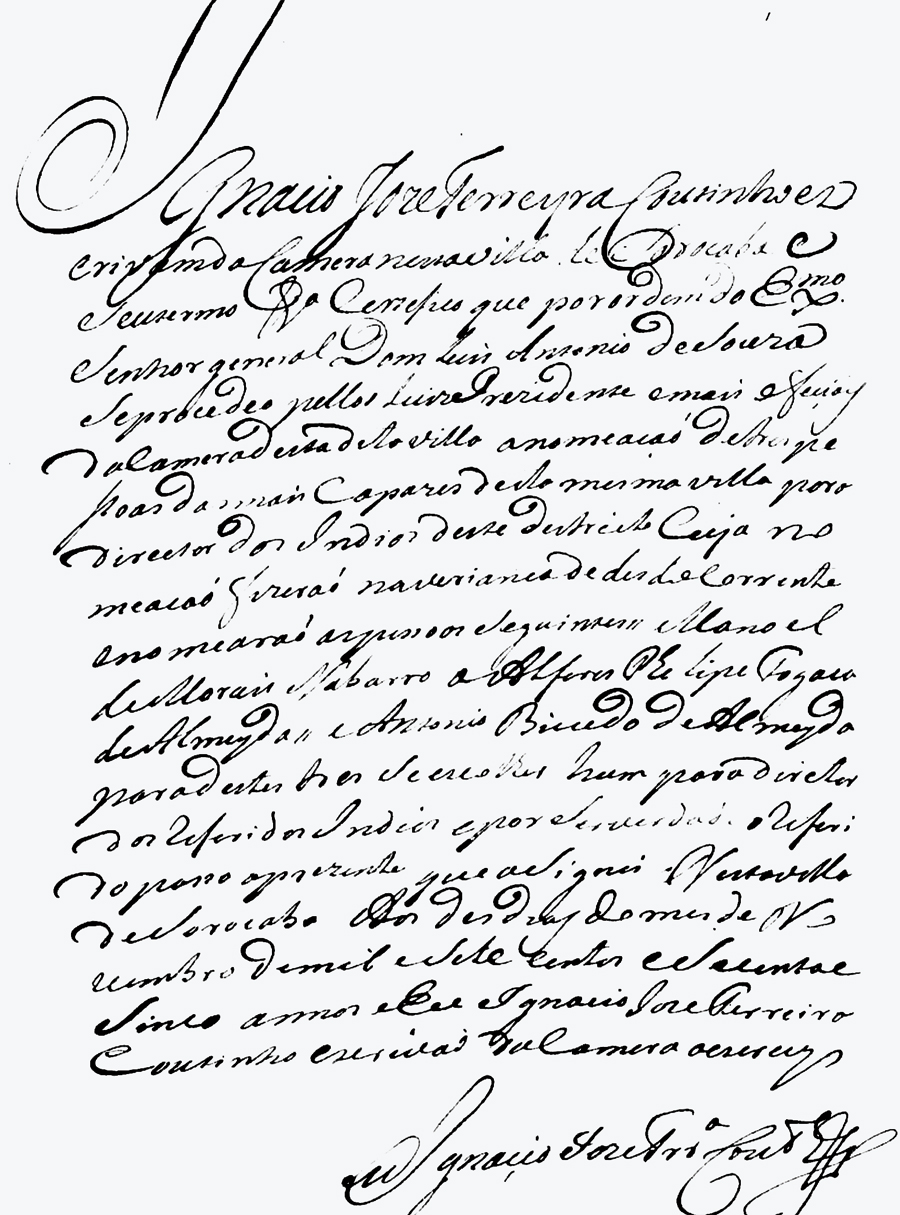 Ignacio Joze Ferreyra Coutinho es
crivam da Camera nesta villa de Sorocaba e
Seu termo &a Certefico que por ordem do Exmo
Senhor general Dom Luis Antonio de Souza
Se procedeo pellos Juiz Prezidente e mais officiays
da Camera desta dita villa a nomeacaó de tres pe
ssoas da mais Capazes desta mesma villa para
Director dos Indios deste destricto Cuja no
meacaó fizeraó na verianca de des do Corrente
e nomearaó as pessoas Seguintes" Manoel
de Morais Nabarro o Alferes Phelipe Fogaca
de Almeyda" e Antonio Bicudo de Almeyda
para destes tres Se escolher hum para director
dos Referidos Indios e por Ser verdade o Referi
do passo a prezente que aSignei Nesta villa
de Sorocaba Aos des dias do mes de No
vembro de mil e Sete centos e Secenta e
Sinco annos e Eu Ignacio Joze Ferreira
Coutinho escrivaó da Camera o escrevy
Ignacio Joze Frra Coutº